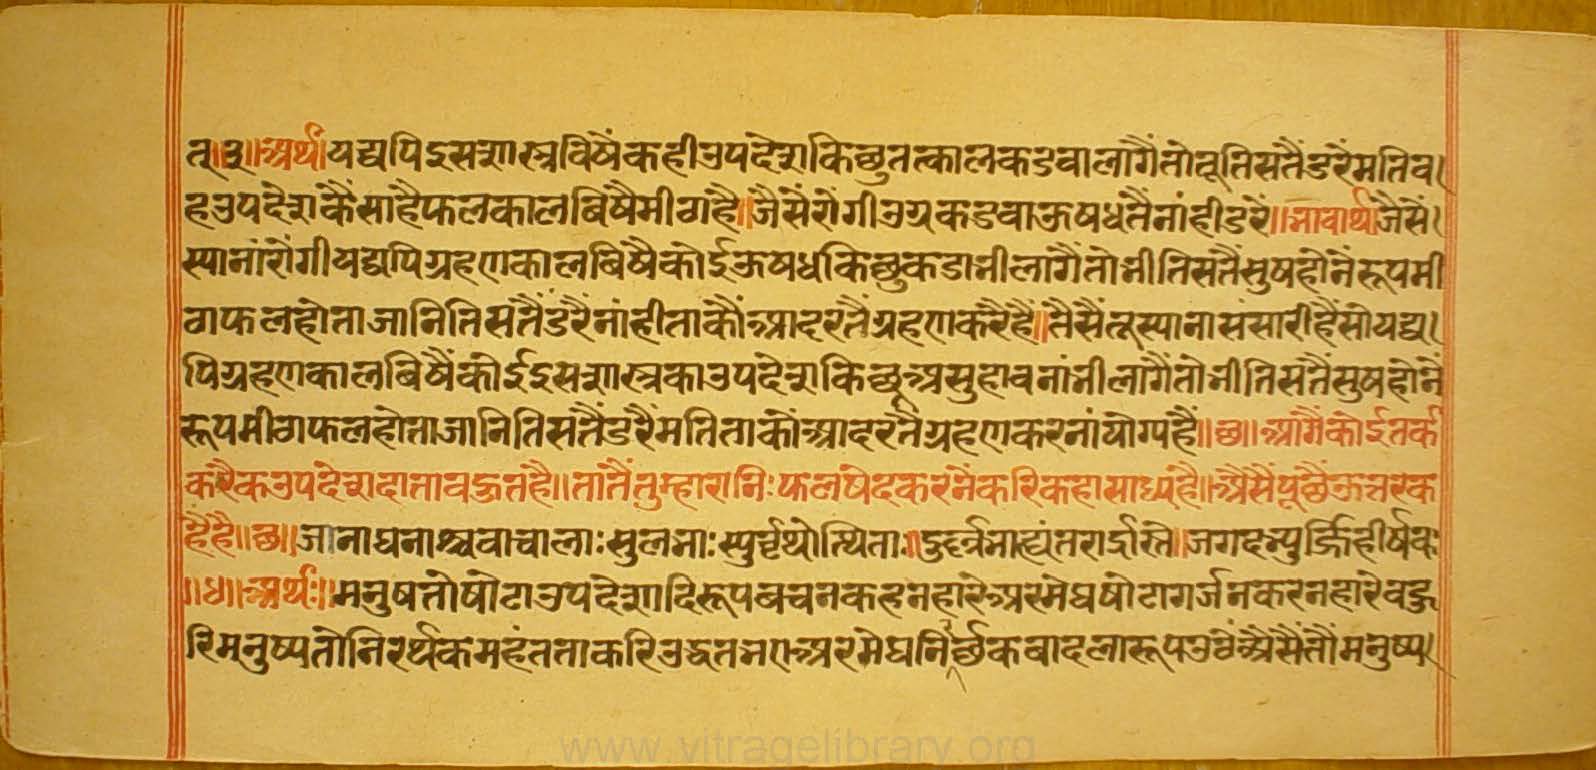 त्॥३॥अर्थ॥यद्यपिइसशास्त्रविषैंकहीउपदेशकिछुतत्कालकडवालागैंतोवूतिसतैंडरैंमतिव।
हउपदेशकैंसाहैफलकालबिषैमीठाहै॥जैसेंरोंगीउग्रकडवाऊषधतैंनांहीडरें॥भावार्थ॥जैसें।
स्यानांरोंगीयद्यपिग्रहणकालबिषैकोईऊषधकिछुकडाभीलागैंतोभीतिसतैंसुषहोनेंरूपमी
ठाफलहोताजानितिसतैंडरैंनांहीताकौंआदरतैंग्रहणकरैहैं॥तैसैंतूस्यानासंसारीहैंसोयद्य।
पिग्रहणकालबिषैंकोईइसशास्त्रकाउपदेशकिछूअसुहावनांभीलागैंतोभीतिसतैंसुषहोनें
रूपमीठाफलहोताजानितिसतैंडरैंमतिताकोंआदरतैंग्रहणकरनांयोग्यहैं॥छ॥आगैंकोईतर्क
करैकउपदेशदातावहुतहै॥तातैंतुम्हारानिःफलषेदकरनेंकरिकहासाध्यहै॥अैसैंपूछैंऊत्तरक
हैहै॥छ॥जानाघनाश्चवाचालाःसुलभाःस्पुर्वृथोत्थिताः॥दुर्ल्लभाह्यंतरार्द्रास्ते॥जगदभ्युर्ज्जिहीर्षवः
॥४॥अर्थः॥मनुषतोषोटाउपदेशादिरूपबचनकहनहारेअरमेघषोटागर्जनकरनहारेवहु
रिमनुष्यतोनिरर्थकमहंतताकरिउद्धतभएअरमेघनिर्र्थकबादलारूपउठेंअैसैंतौंमनुष्य।
www.vitragelibrary.org